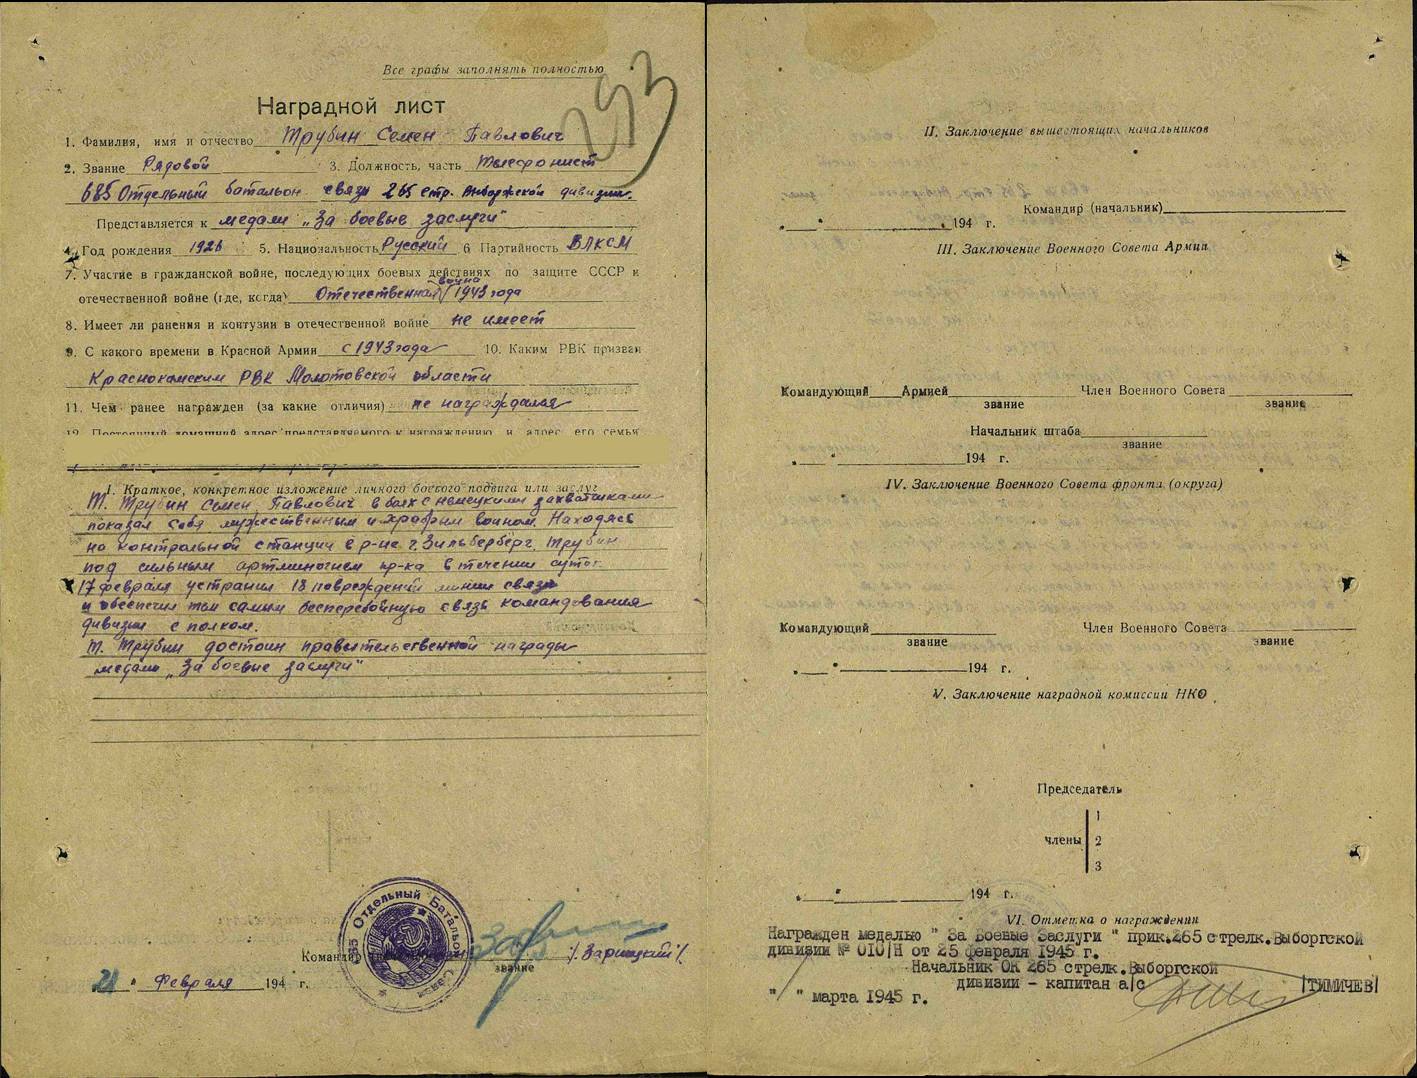 Все графы заполнять полностью
293
Наградной лист
1. Фамилия, имя и отчество Трубин Семен Павлович
2. Звание Рядовой 3. Должность, часть Телефонист
685 Отдельный батальон связи 265 стр. Выборжской дивизии.
Представляется к медали „За боевые заслуги"
4. Год рождения 1926 5. Национальность Русский 6 Партийность ВЛКСМ
7. Участие в гражданской войне, последующих боевых действиях по защите СССР и
отечественной войне (где, когда) Отечественная война 1943 года
8. Имеет ли ранения и контузии в отечественной войне не имеет
9. С какого времени в Красной Армии с 1943 года 10. Каким РВК призван
Краснокамским РВК Молотовской области
11. Чем ранее награжден (за какие отличия) не награждался
12. Постоянный домашний адрес представляемого к награждению и адрес его семьи
I. Краткое, конкретное изложение личного боевого подвига или заслуг
Т. Трубин Семен Павлович в боях с немецкими захватчиками
показал себя мужественным и храбрым воином. Находясь
на контрольной станции в р-не г. Зильберберг, Трубин
под сильным артминогнем пр-ка в течении суток
17 февраля устранил 18 повреждений линии связи
и обеспечил тем самым бесперебойную связь командования
дивизии с полком.
Т. Трубин достоин правительственной награды
медали „За боевые заслуги"
Отдельный Батальон Связи
Командир /Зарицкий/.
звание
21 " Февраля 194 г.
II. Заключение вышестоящих начальников
Командир (начальник)
„ " 194 г.
III. Заключение Военного Совета Армии
Командующий Армией Член Военного Совета
звание звание
Начальник штаба
звание
„ " 194 г.
IV. Заключение Военного Совета фронта (округа)
Командующий Член Военного Совета
звание звание
„ " 194 г.
V. Заключение наградной комиссии НКО
Председатель
1
члены 2
3
„ " 194 г.
VI. Отметка о награждении
Награжден медалью " За Боевые Заслуги " прик.265 стрелк.Выборгской
дивизии № 010/Н от 25 февраля 1945 г.
Начальник ОК 265 стрелк.Выборгской
дивизии - капитан а/с /ТИМИЧЕВ/
" " марта 1945 г.